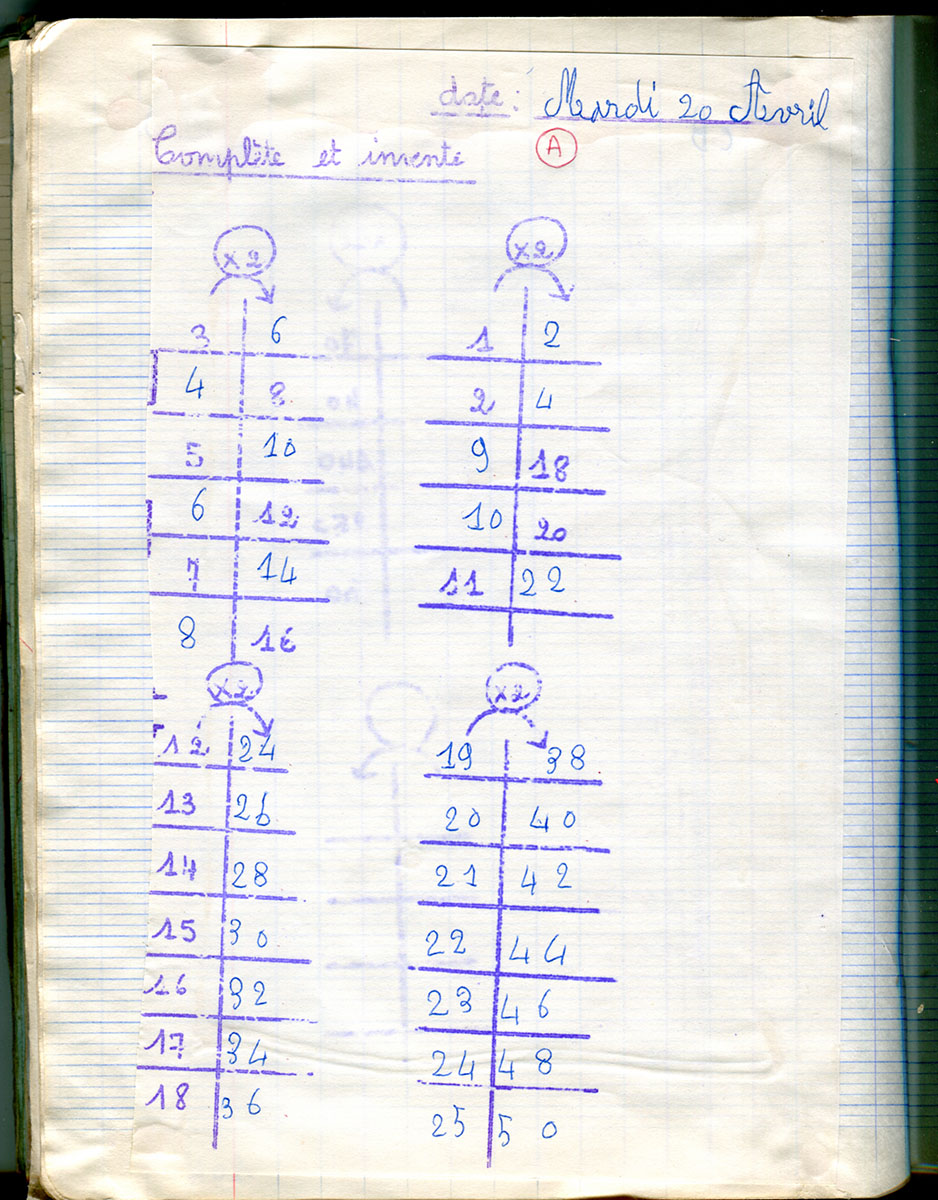 date: Mardi 20 Avril
Complète et invente
A
x2
3 6
4 8
5 10
6 12
7 14
8 16
x2
1 2
2 4
9 18
10 20
11 22
x2
12 24
13 26
14 28
15 30
16 32
17 34
18 36
x2
19 38
20 40
21 42
22 44
23 46
24 48
25 50